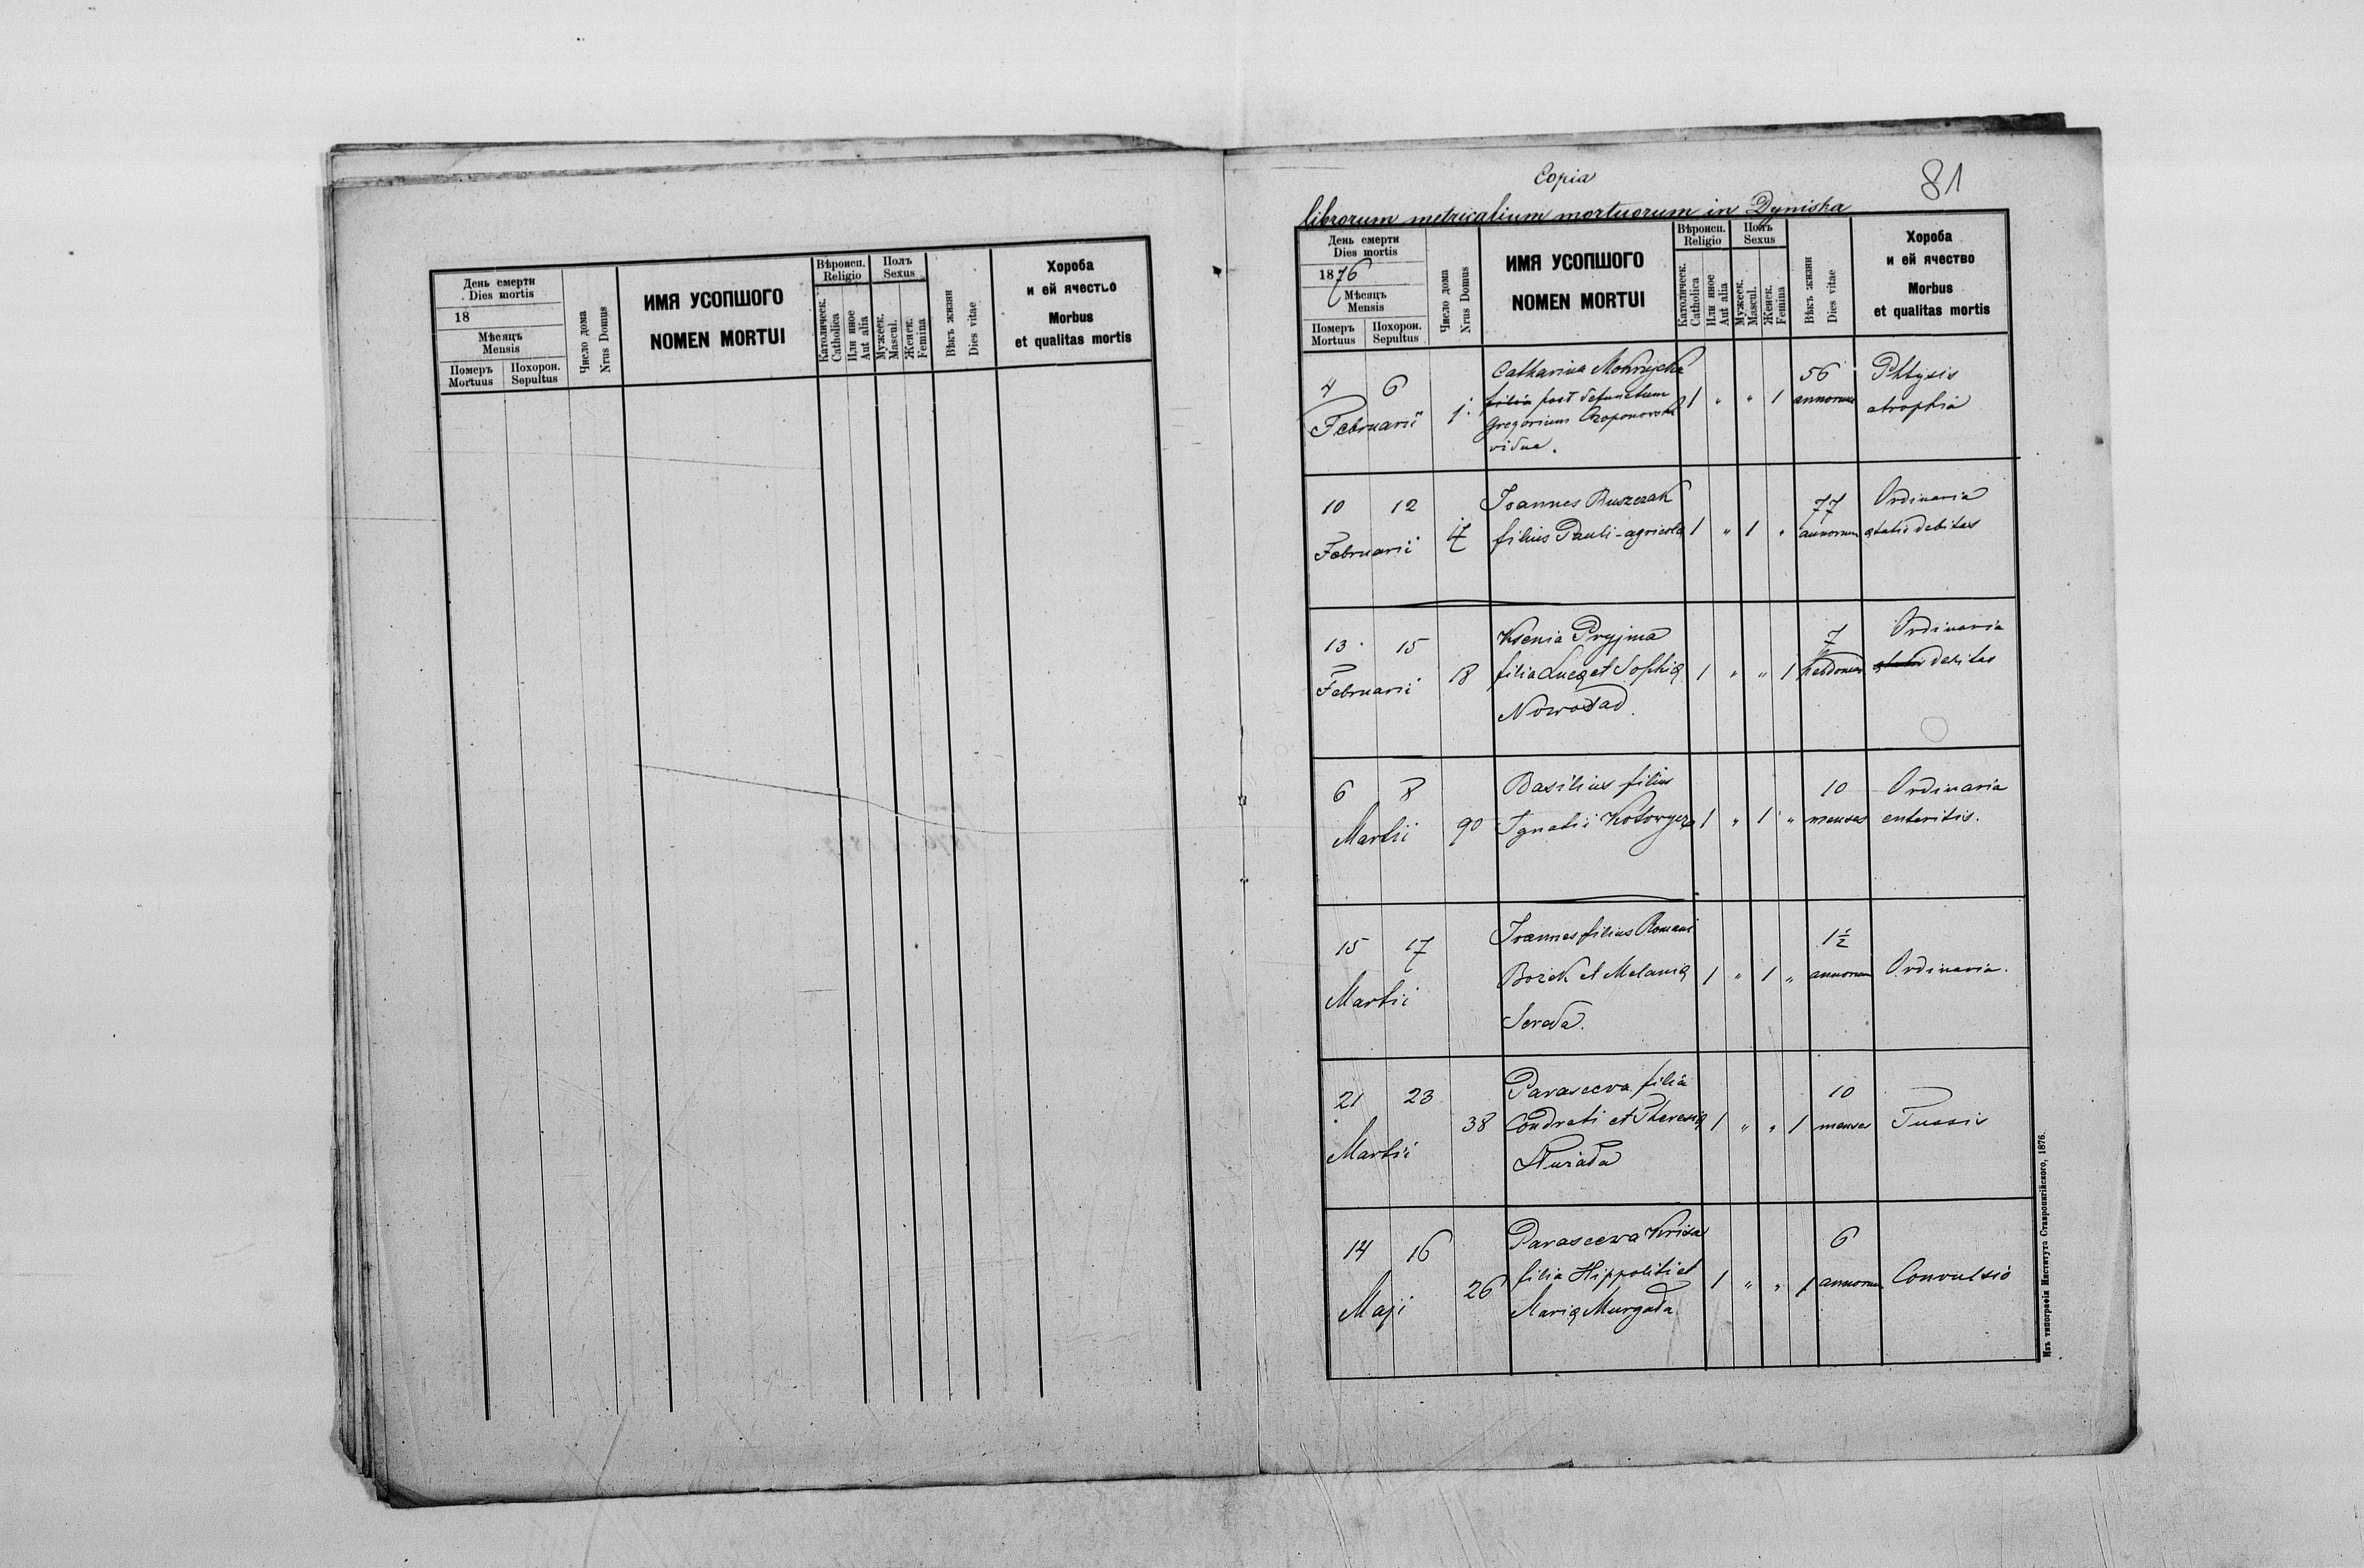 День смерти
Dies mortis
18
Мѣсяцъ
Mensis
Померъ
Mortuus
Похорон.
Sepultus
Число дома
Nrus Domus
ИМЯ УСОПШОГО
NOMEN MORTUI
Вѣроисп.
Religio
Католическ.
Catholica
Или иное
Aut alia
Полъ
Sexus
Мужеск.
Mascul.
Женск.
Femina
Вѣкъ жизни
Dies vitae
Хороба
и ей ячество
Morbus
et qualitas mortis
Copia
81
librorum metricalium mortuorum in Dyniska
День смерти
Dies mortis
1876
Мѣсяцъ
Mensis
Померъ
Mortuus
Похорон.
Sepultus
Число дома
Nrus Domus
ИМЯ УСОПШОГО
NOMEN MORTUI
Вѣроисп.
Religio
Католическ.
Catholica
Или иное
Aut alia
Полъ
Sexus
Мужеск.
Mascul.
Женск.
Femina
Вѣкъ жизни
Dies vitae
Хороба
и ей ячество
Morbus
et qualitas mortis
4 6
Februarii
1.
Catharina
filia post defunctum
Gregorium
vidua.
1 " " 1
56
annorum
Phtysis
atrophia
10 12
Februarii
17
Joannes Buszczak
filius Pauli - agricola
1 " 1 "
77
annorum
Ordinaria
ętatis debitas
13 15
Februarii
18
Ksenia Pryjma
filia Lucę et Sophię
Nowosad.
1 " " 1
7
Ordinaria
debitas
6 8
Martii
90
Basilius filius
Ignatii
1 " 1 "
10
menses
Ordinaria
enteritis.
15 17
Martii
Joannes filius Romani
Bozek et Melanię
Sereda.
1 " 1 "
1½
annorum
Ordinaria.
21 23
Martii
38
Parascewa filia
Condrati et Theresię
1 " " 1
10
menses
Tussis
14 16
Maji
26
Parascewa
filia Hippoliti et
Marię Murgała
1 " " 1
6
annorum
Convulsio
Изъ типографіи Института Ставропигійского, 1876.